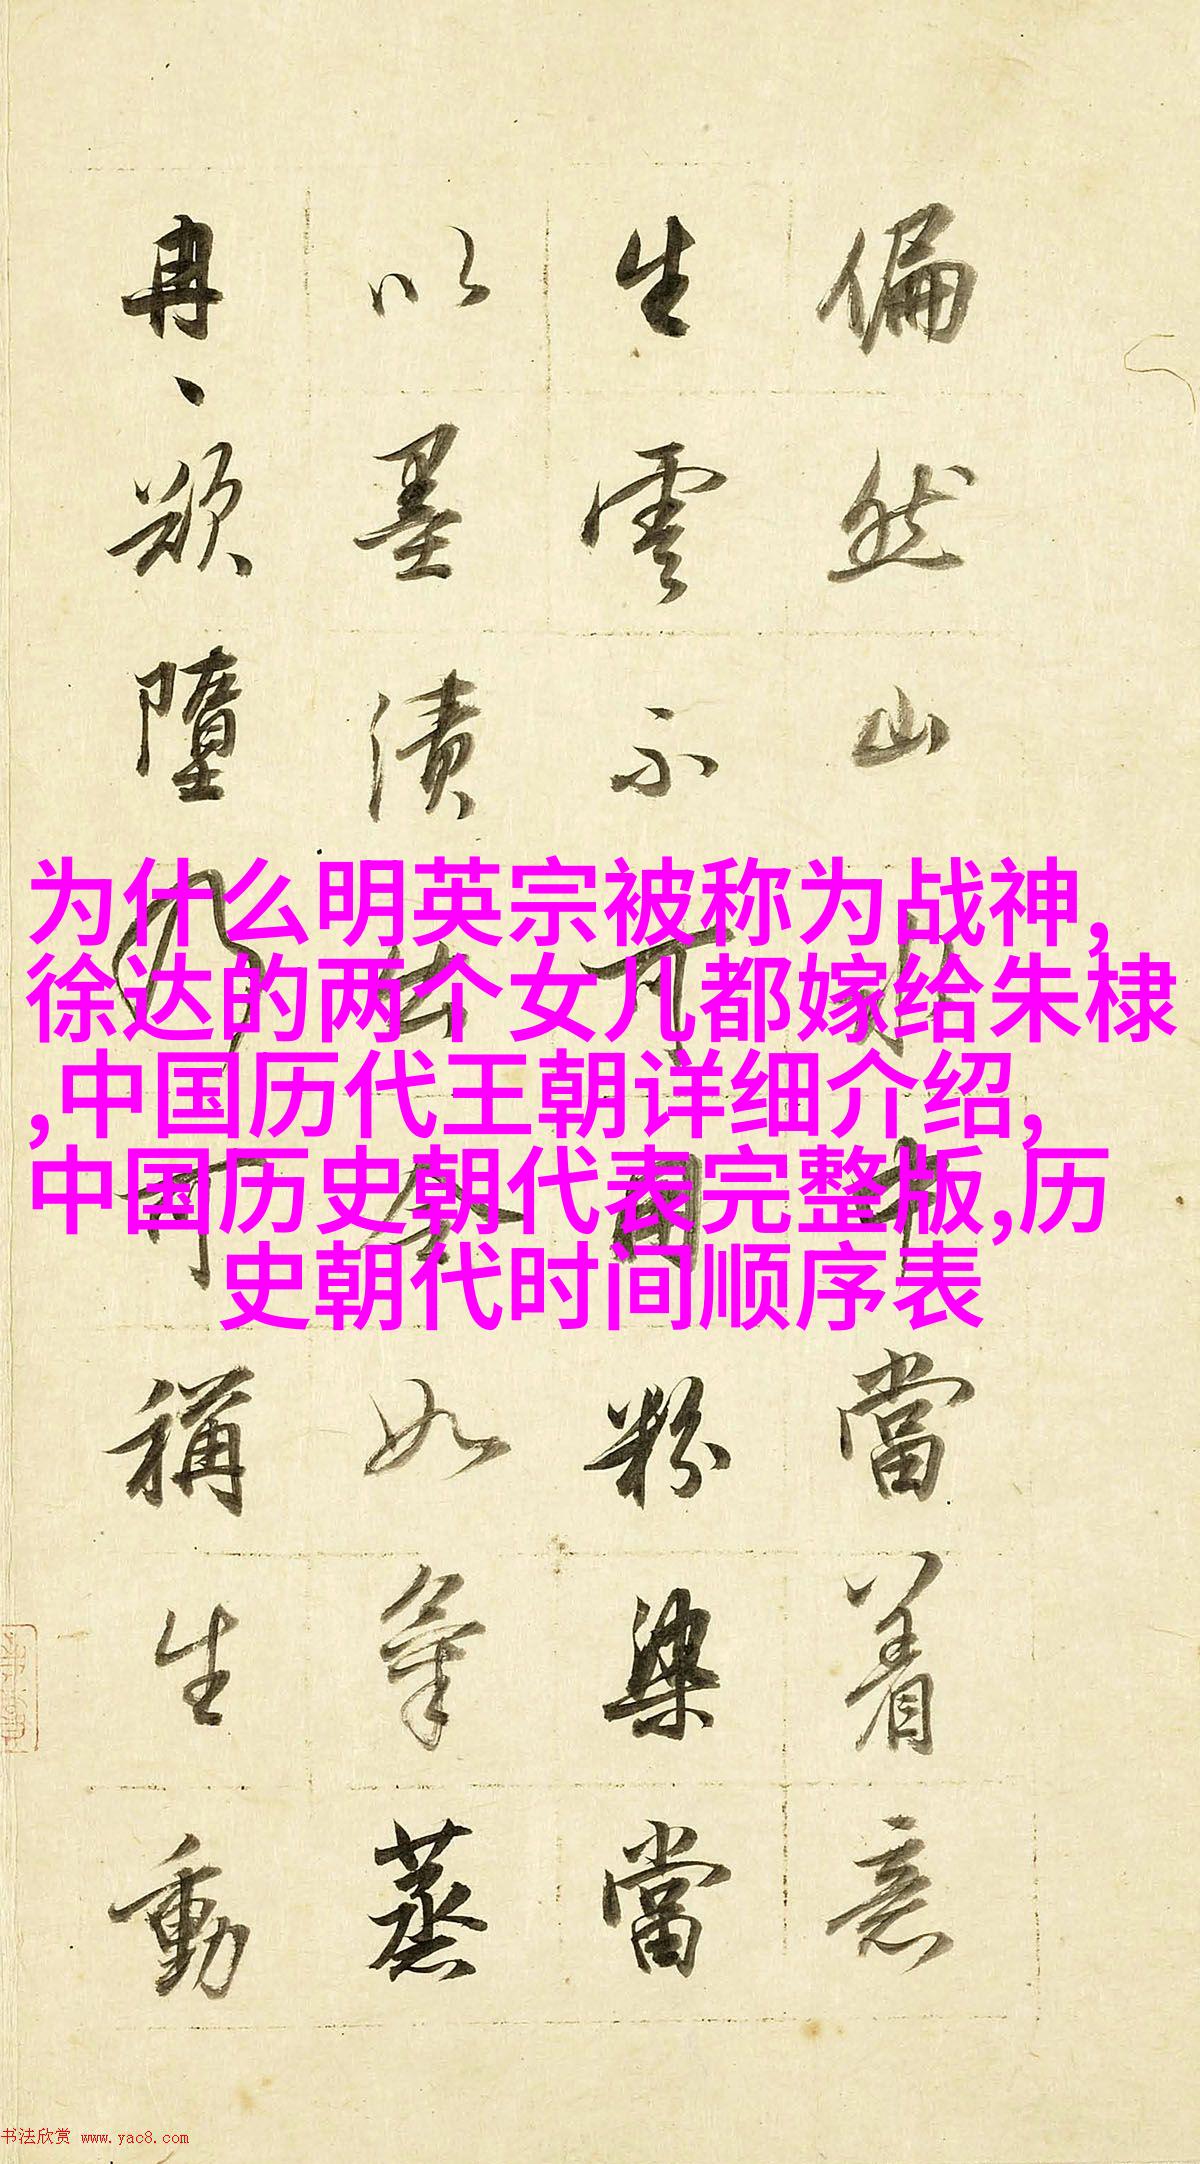 偏然山水中當着意
生雲不可用粉染當
以墨漬出令如氣蒸
冉、欲墮乃可稱生動
为什么明英宗被称为战神,
徐达的两个女儿都嫁给朱棣
,中国历代王朝详细介绍,
中国历史朝代表完整版,历
史朝代时间顺序表
书法欣赏 www.yac8.com